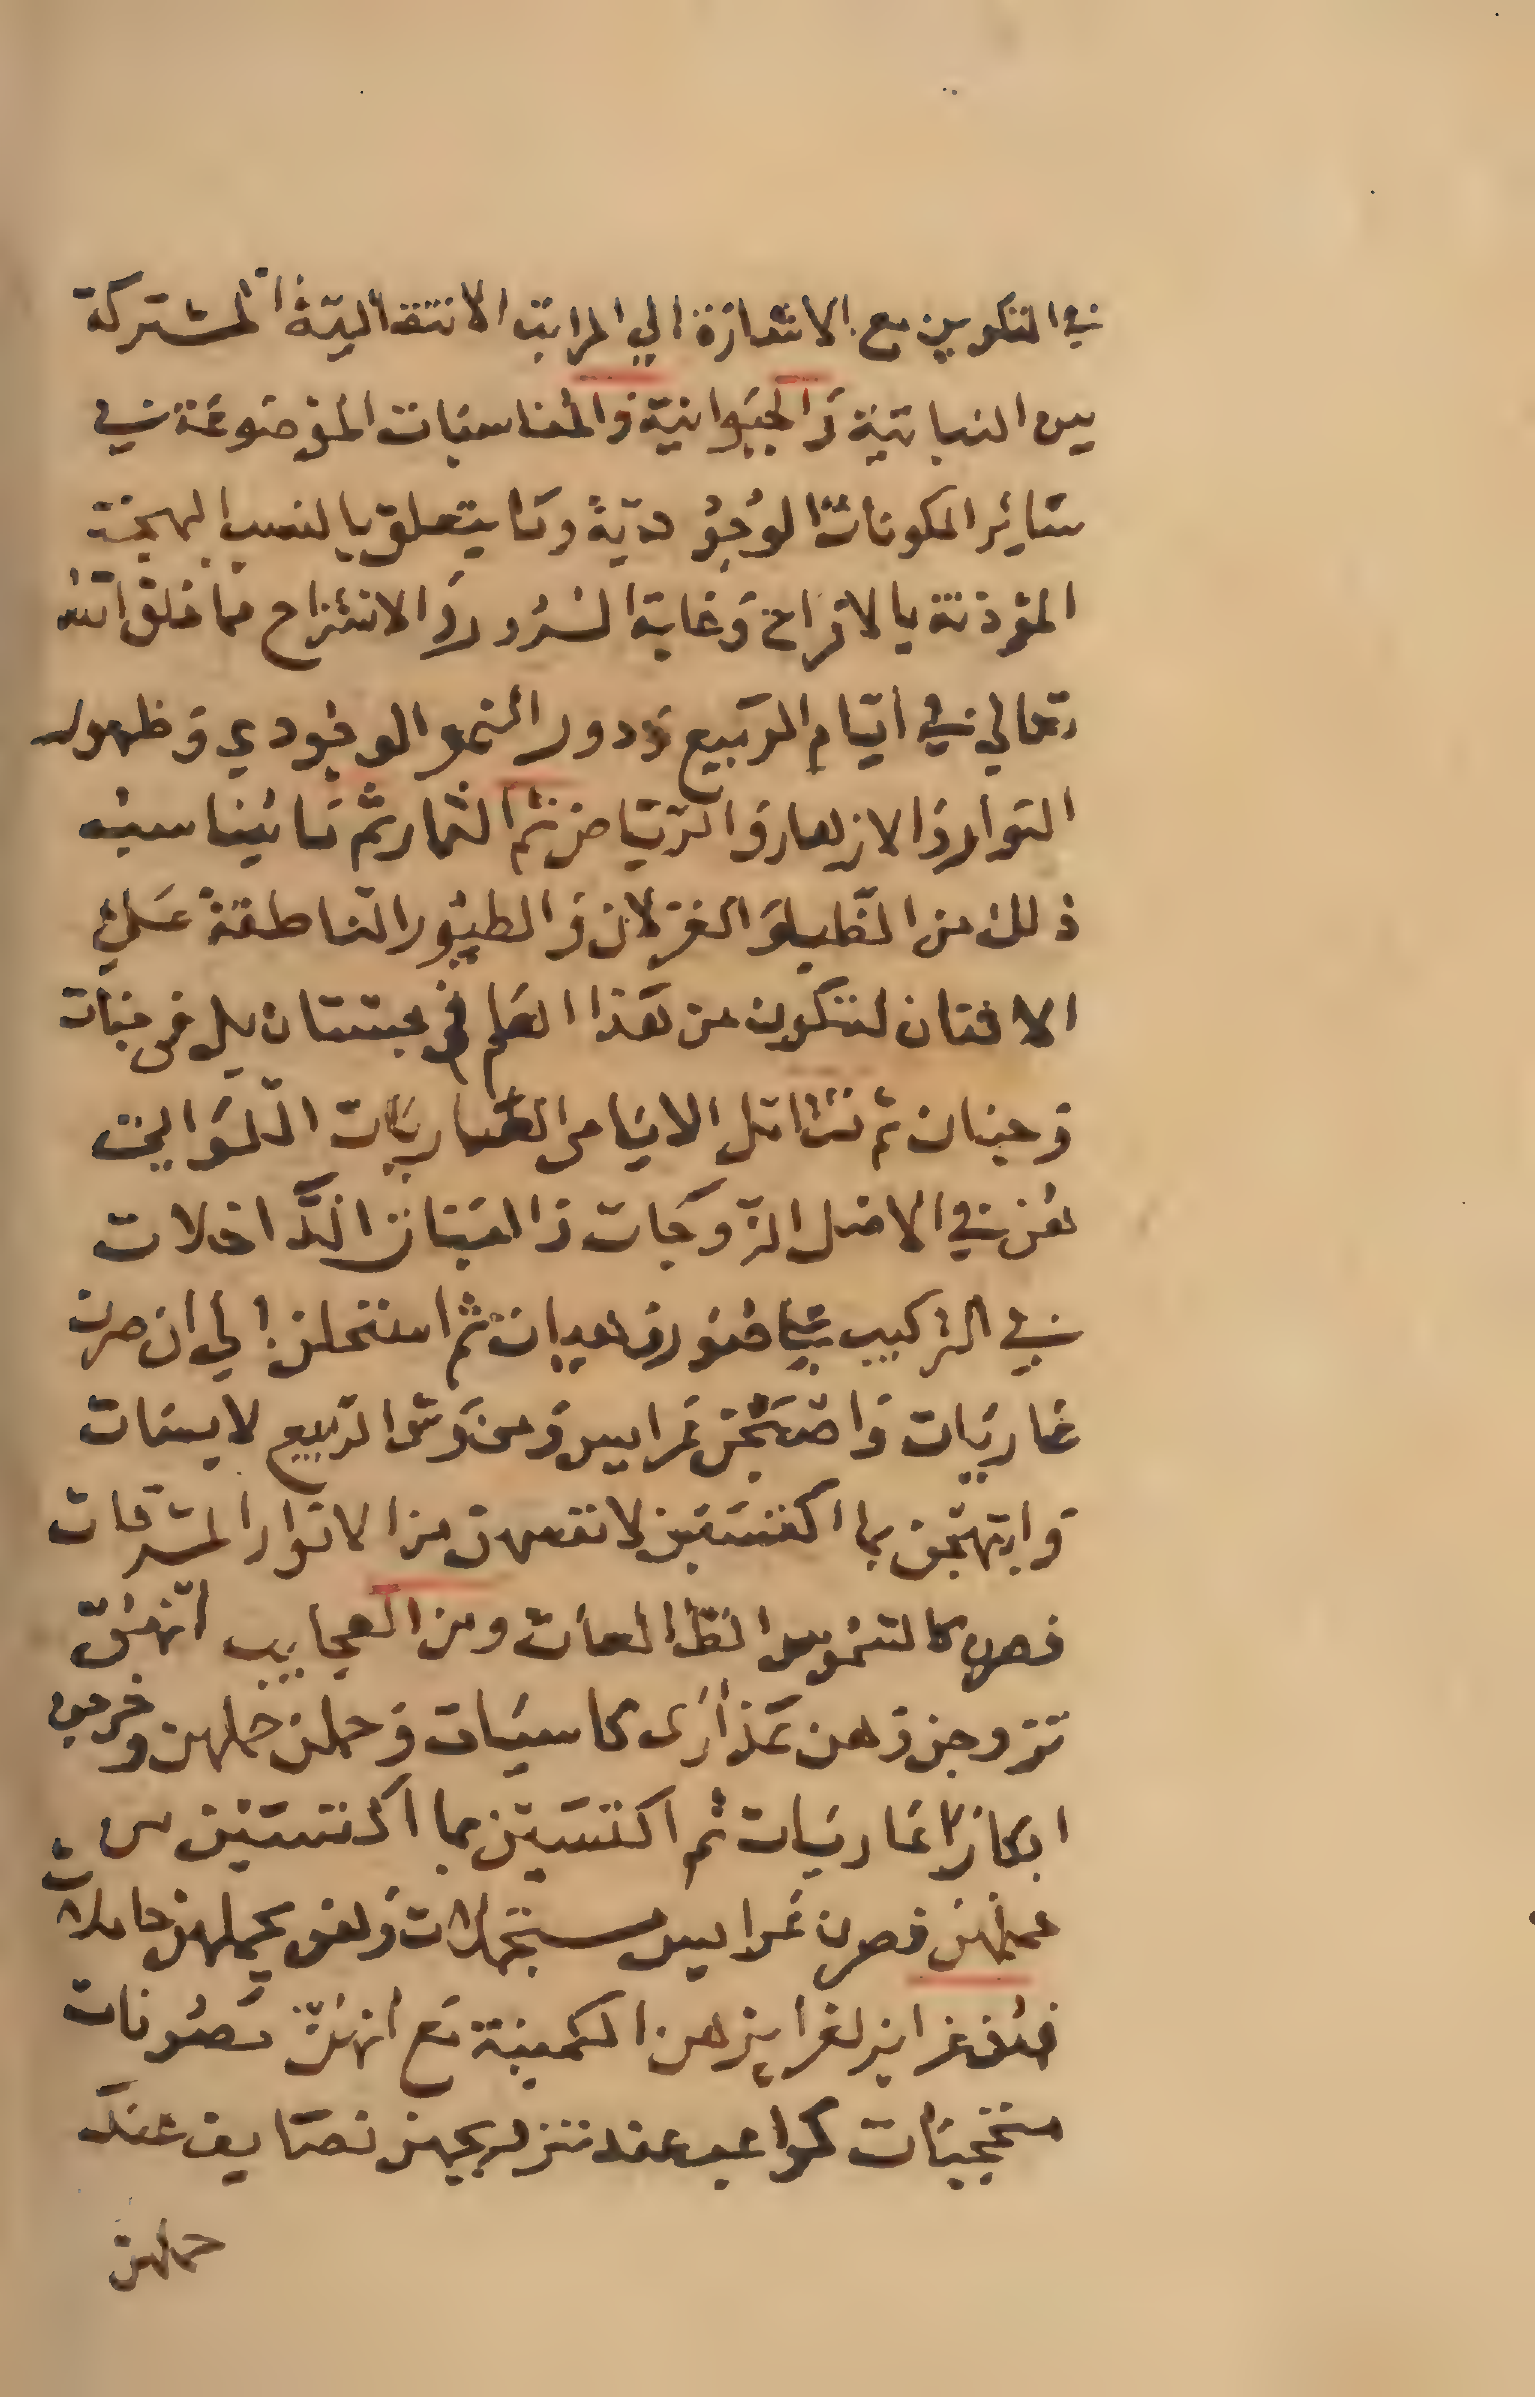 في التكوين مع الاشارة الي المراتب الانتقالية المشتركة
بين النباتية والحيوانية والمناسبات الموضوعة في
سائر المكونات الوجودية وما يتعلق بالنسب البهجة
المؤذنة بالافراح وغاية السرور والانشراح مما خلق الله
تعالي في ايام الربيع ودور النمو الوجودي وظهور
النوار والازهار والرياض ثم الثمار ثم ما يناسب
ذلك من الظباء والغزلان والطيور الناطقة علي
الافنان لنكون من هذا العلم في بستان بل في جنات
وجنان ثم نتامل الانيا من العاريات اللواتي
هن في الاصل الزوجات والبنات الداخلات
في التركيب بياض ورهبان ثم استحلن الي ان صرن
عاريات واصبحن عرايس ومن وشي الربيع لابسات
وابتهجن بما اكتسبن لانفسهن من الانوار المشرقات
فصرن كالشموس الطالعات ومن العجايب انهن
تزوجن وهن عذارى كاسيات وحملن حملهن وخرجن
ابكارا عاريات ثم اكتسين بما اكتسبن من
عملهن فصرن عرايس مستجملات وهن بحملهن حاملات
فهن غرايز لغرايزهن الكمينة مع انهن مصونات
محجبات كواعب عند تزويجهن نصايف عند
حملهن